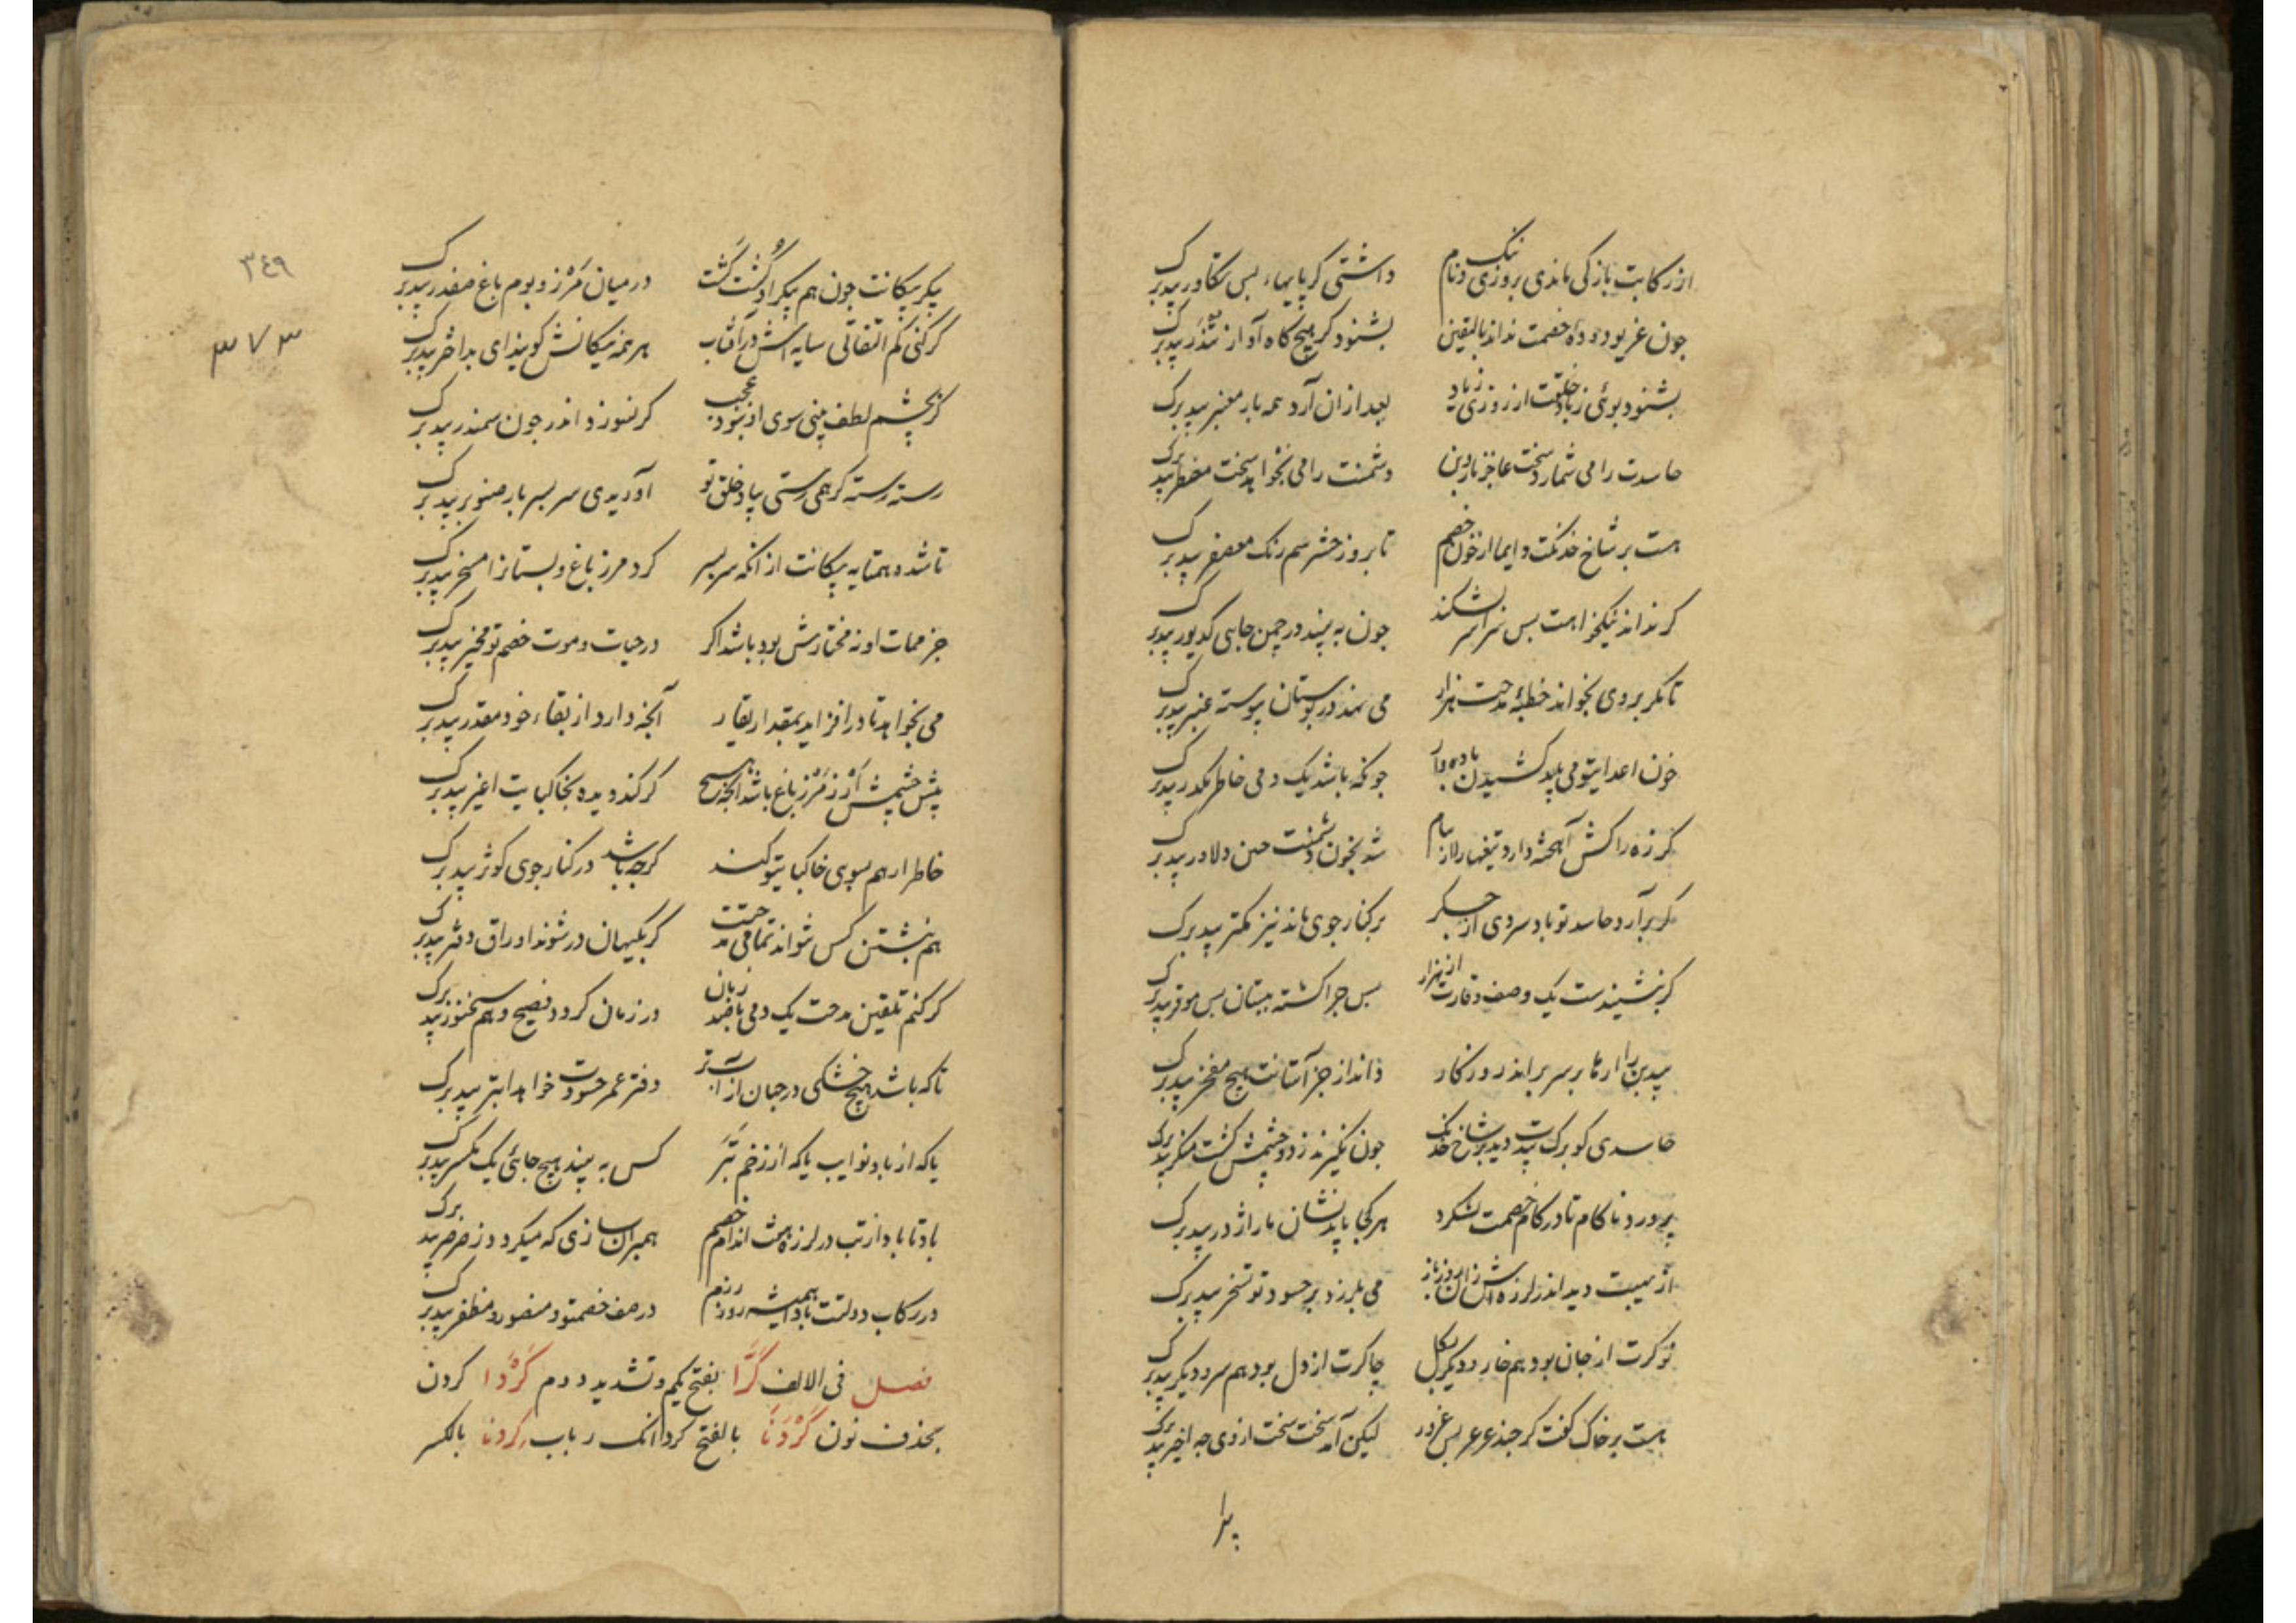 از رکابت باز کی ماندی بروزی ننک و نام داشتی کر پایهاء بس تکاور بیدبرک
جون غریو دوده خصمت نداند بالیقین بشنود کر هیج کاه آواز تندر بیدبرک
بشنود بوئی ز باد خلقت از روزی زیاد بعد ازان آرد همه بار معنبر بیدبرک
حاسدت را می شمارد سخت عاجز بادبن دشمنت را می بخواند سخت مضطر بیدبرک
هست بر شاخ خدنکت دایما از خون خصم تا بروز حشر هم رنک معصفر بیدبرک
کر نداند نیکخواهت بس سراسر بشکند جون به بیند در جمن جای کدیور بیدبرک
تا مکر بروی بخواند خطبهٔ مدحت هزار می نهد در بوستان پیوسته منبر بیدبرک
خون اعدایتو می باید کشیدن باده وار جونکه باشد یک دمی خاطر مکدر بیدبرک
کرزه را کش آهخته دارد تیغها را از نیام شد بخون دشمنت حین دلاور بیدبرک
کر برآرد حاسد تو باد سردی از جکر بر کنار جوی ماند نیز کمتر بیدبرک
کر نشنیدست یک وصف وقارت از هزار بس جرا کشته ببستان بس موقر بیدبرک
بیدبن را ارها بر سر براند روزکار داند از جز آستانت هیج مفخر بیدبرک
حاسدی کو برک بیدت دید بر شاخ خدنک جون نکیرند زو دو جشمش کشت منکر بیدبرک
پرورد ناکام تا در کام خصمت بشکرد هر کجا یابد نشان مار اژدر بیدبرک
از نهیبت دید اندر لرزه اش زان روز باز می بلرزد بر حسود تو تسخر بیدبرک
نوکرت از جان بود هم خار و دیکر کل جاکرت از دل بود هم سرو دیکر بیدبرک
هست بر خاک کفت کر جند عرعر بس غرور لیکن آمد سخت سخت از وی جه اخیر بیدبرک
۳٤۹
۳۷۳
پیکر پیکانت جون هم پیکر او کشت کشت در میان مرز و بوم باغ صفدر بیدبرک
کر کنی کم التفاتی سایه اش در آفتاب هر همه پیکانش کویند ای بداختر بیدبرک
کر بجشم لطف بینی سوی او نبود عجب کر نسوزد اندر جون سمندر بیدبرک
رسته رسته کر همی رستی بیاد خلق تو آوریدی سر بسر بار صنوبر بیدبرک
تا شده همتایه پیکانت از انکه سر بسر کرد مرز باغ و بستانرا مسخر بیدبرک
جز ممات او نه مختارش بود باشد اکر در حیات و موت خصم تو مخیر بیدبرک
می بخواهد تا درافزاید بمقدار بقا آنجه دارد از بقاء خود مقدر بیدبرک
پیش جشمش ارز مرز باغ باشد انجه هیج کر کند دیده بخاکپایت اغبر بیدبرک
خاطر ار هم بسوی خاکپایتو کند کرجه باشد در کنار جوی کوثر بیدبرک
هم نبشتن کس نتواند تمامی مدحتت کر بکیهان در شوند اوراق دفتر بیدبرک
کر کنم تلقین مدحت یک دمی با ضد زبان در زمان کردد فصیح و هم سخنور بیدبرک
تا که باشد هیج خشکی در جهان از آب تر دفتر عمر حسودت خواهد ابتر بیدبرک
یا که از باد نوایب یا که از زخم تبر کس به بیند هیج جائی یک مکسر بیدبرک
باد تا باد از تب در لرزه هفت اندام خصم همبران سازی که میکردد ز صرصر بیدبرک
در رکاب دولتت بادا همیشه روز رزم در صف خصمت و منصور و مظفر بیدبرک
فصل فی الالف کَرّا بفتح یکم و تشدید دوم کَرْدا کردن
بحذف نون کَرْدَنا بالفتح کردانک رباب کِردنا بالکسر